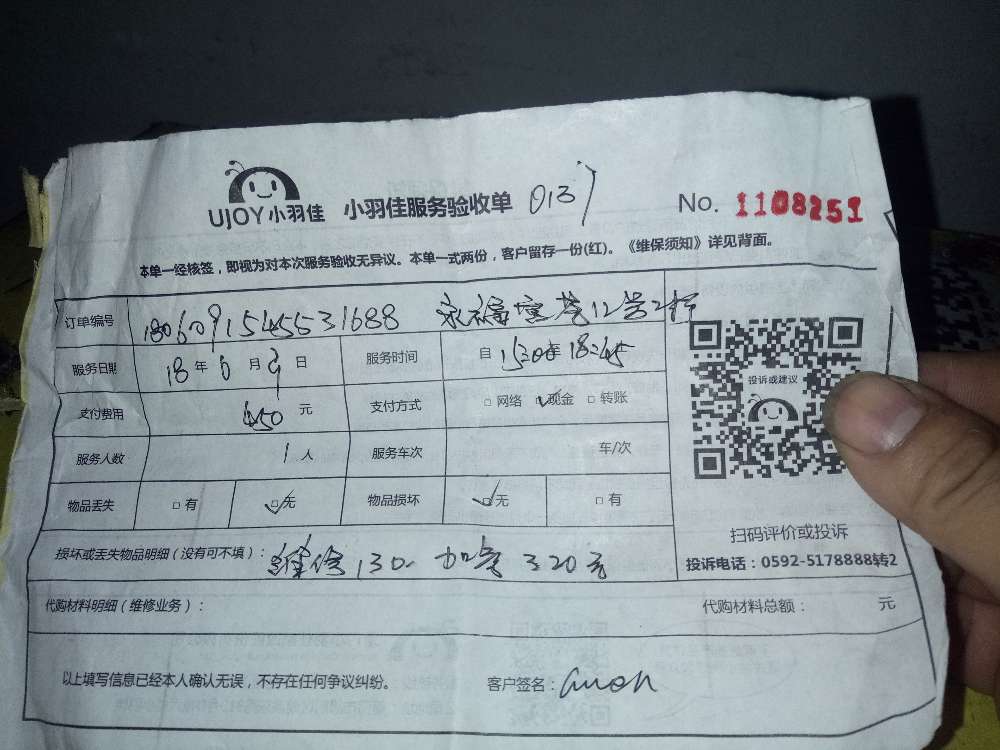 UJOY小羽佳 小羽佳服务验收单 0137 No. 1108251
本单一经核签，即视为对本次服务验收无异议。本单一式两份，客户留存一份(红)。《维保须知》详见背面。
订单编号 180609154553 1688 12号2楼
服务日期 18年6月9日 服务时间 15:00 18:45
投诉或建议
支付费用 450元 支付方式 □网络 ☑现金 □转账
服务人数 1人 服务车次 车/次
物品丢失 □有 ☑无 物品损坏 ☑无 □有
扫码评价或投诉
损坏或丢失物品明细（没有可不填）： 维修130 加雪320元
投诉电话：0592-5178888转2
代购材料明细（维修业务）： 代购材料总额： 元
以上填写信息已经本人确认无误，不存在任何争议纠纷。 客户签名：